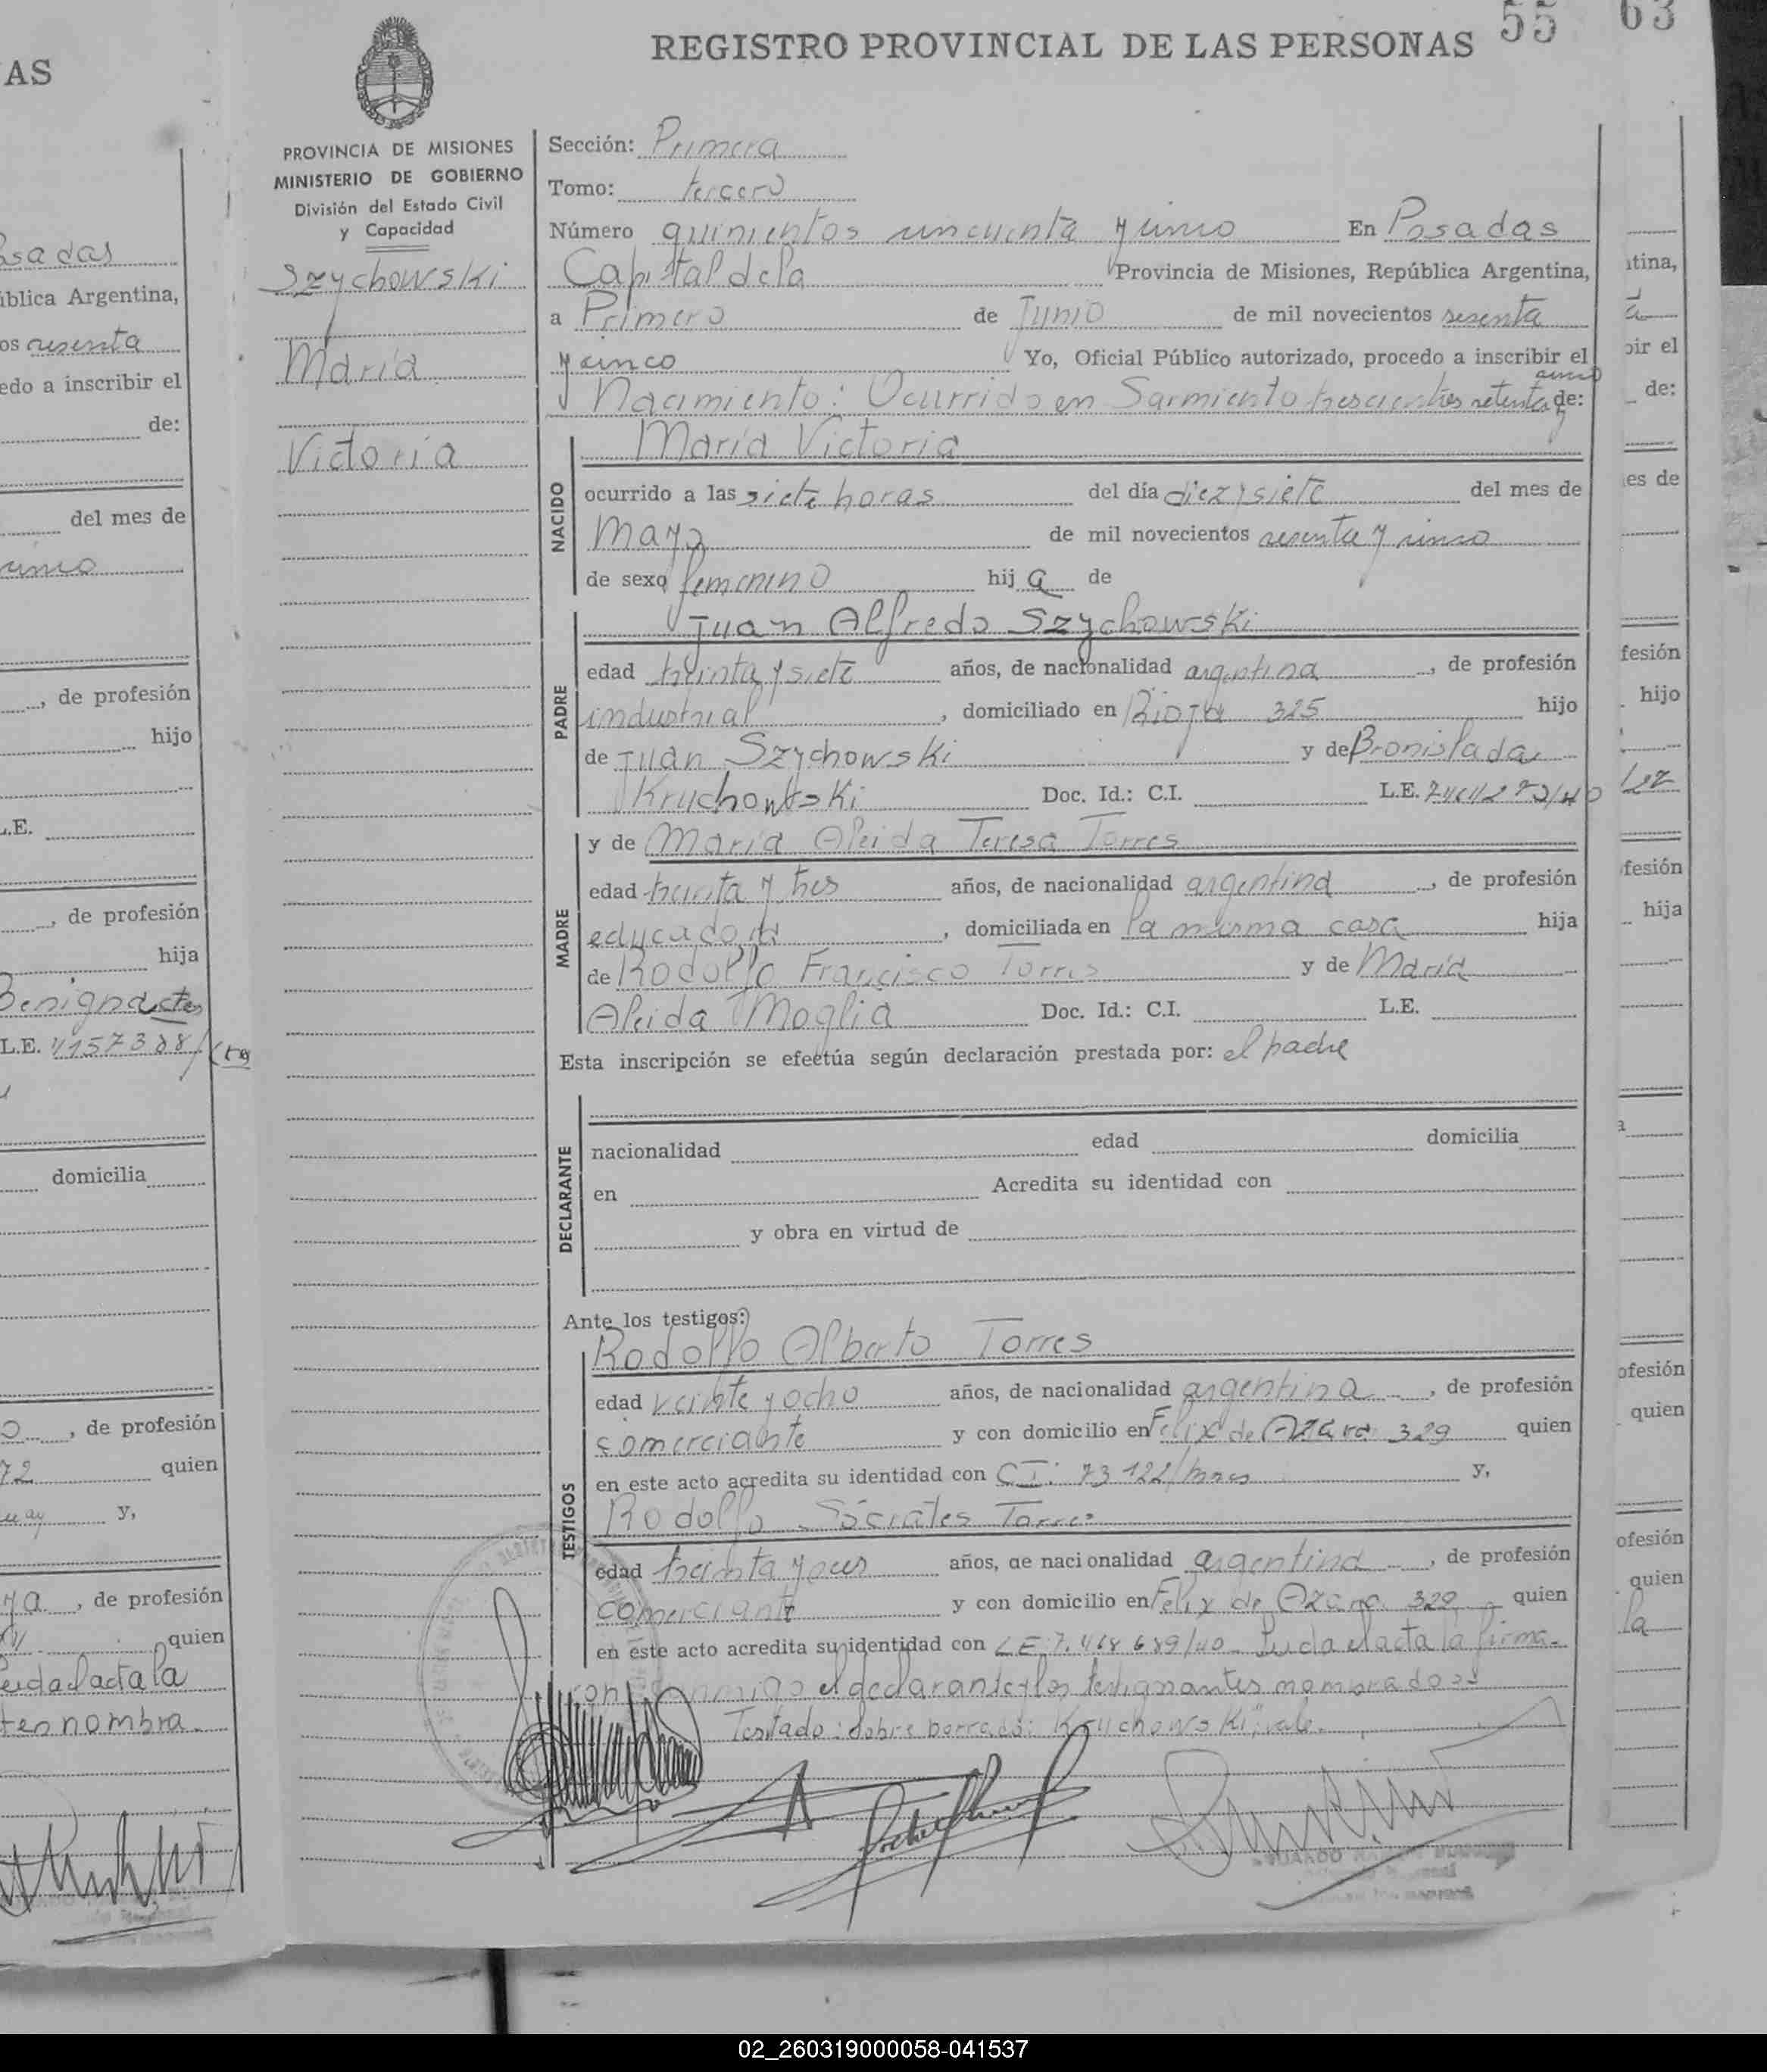 AS
REGISTRO PROVINCIAL DE LAS PERSONAS 55 63
PROVINCIA DE MISIONES
MINISTERIO DE GOBIERNO
División del Estado Civil
y Capacidad
Szychowski
María
Victoria
Sección: Primera
Tomo: tercero
Número quinientos cincuenta y cinco En Posadas
Capital de la Provincia de Misiones, República Argentina,
a Primero de Junio de mil novecientos sesenta
y cinco Yo, Oficial Público autorizado, procedo a inscribir el
Nacimiento: Ocurrido en Sarmiento trescientos setenta y cinco de:
NACIDO
María Victoria
ocurrido a las siete horas del día diez y siete del mes de
Mayo de mil novecientos sesenta y cinco
de sexo femenino hija de
PADRE
Juan Alfredo Szychowski
edad treinta y siete años, de nacionalidad argentina, de profesión
industrial, domiciliado en Rioja 325 hijo
de Juan Szychowski y de Bronislada
Kruchowski Doc. Id.: C.I. L.E.
MADRE
y de María Aleida Teresa Torres
edad treinta y tres años, de nacionalidad argentina, de profesión
educadora, domiciliada en la misma casa hija
de Rodolfo Francisco Torres y de María
Aleida Moglia Doc. Id.: C.I. L.E.
Esta inscripción se efectúa según declaración prestada por: el padre
DECLARANTE
nacionalidad edad domicilia
en Acredita su identidad con
y obra en virtud de
Ante los testigos:
TESTIGOS
Rodolfo Alberto Torres
edad veinte y ocho años, de nacionalidad argentina, de profesión
comerciante y con domicilio en Felix de Azara 329 quien
en este acto acredita su identidad con C.I: 73122/mnes y,
Rodolfo Sócrates Torres
edad treinta y años, de nacionalidad argentina, de profesión
comerciante y con domicilio en Felix de Azara 329 quien
en este acto acredita su identidad con L.E 7.468.689/40 Leida el acta la firma
conmigo el declarante y los testigos nombrados
Testado: sobre borrado: Kruchowski; vale.
osadas
ública Argentina,
os sesenta
edo a inscribir el
de:
del mes de
cinco
, de profesión
hijo
L.E.
, de profesión
hija
L.E.
domicilia
, de profesión
72 quien
y,
, de profesión
quien
Leida el acta la
nombra
tina,
bir el
de:
es de
fesión
hijo
fesión
hija
ofesión
quien
ofesión
quien
la
02_260319000058-041537